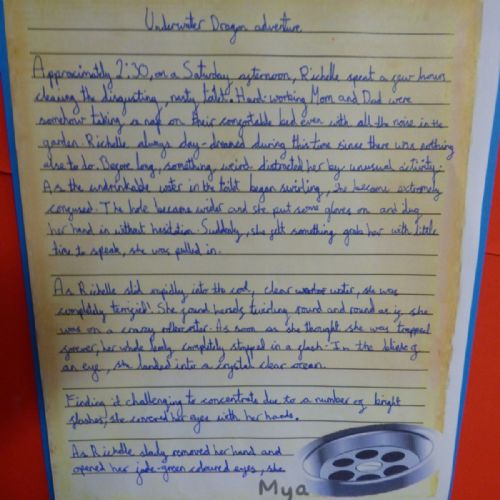 Underwater Dragon adventure
Approximately 2:30, on a Saturday afternoon, Richelle spent a few hours
cleaning the disgusting, rusty toilet. Hard-working Mom and Dad were
somehow taking a nap on their comfortable bed even with all the noise in the
garden. Richelle always day-dreamed during this time since there was nothing
else to do. Before long, something weird distracted her by unusual activity.
As the undrinkable water in the toilet began swirling, she became extremely
confused. The hole became wider and she put some gloves on and dug
her hand in without hesitation. Suddenly, she felt something grab her with little
time to speak, she was pulled in.
As Richelle slid rapidly into the cool, clear water, she was
completely terrified! She found herself twirling round and round as if she
was on a crazy rollercoaster. As soon as she thought she was trapped
forever, her whole body completely stopped in a flash. In the blink of
an eye, she landed into a crystal clear ocean.
Finding it challenging to concentrate due to a number of bright
flashes, she covered her eyes with her hands.
As Richelle slowly removed her hand and
opened her jade-green coloured eyes, she
Mya